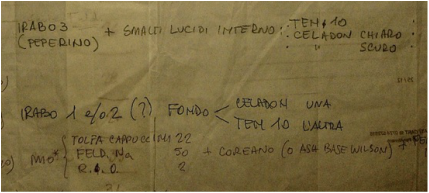 IRABO 3 + SMALTI LUCIDI INTERNO : TEM 10
(PEPERINO) CELADON CHIARO
" SCURO
IRABO 1 e/o 2 (?) FONDO CELADON UNA
TEM 10 L'ALTRA
MIO* TOLFA CAPPUCCINI 22
FELD. Na 50 + COREANO (O ASH BASE WILSON) +
2